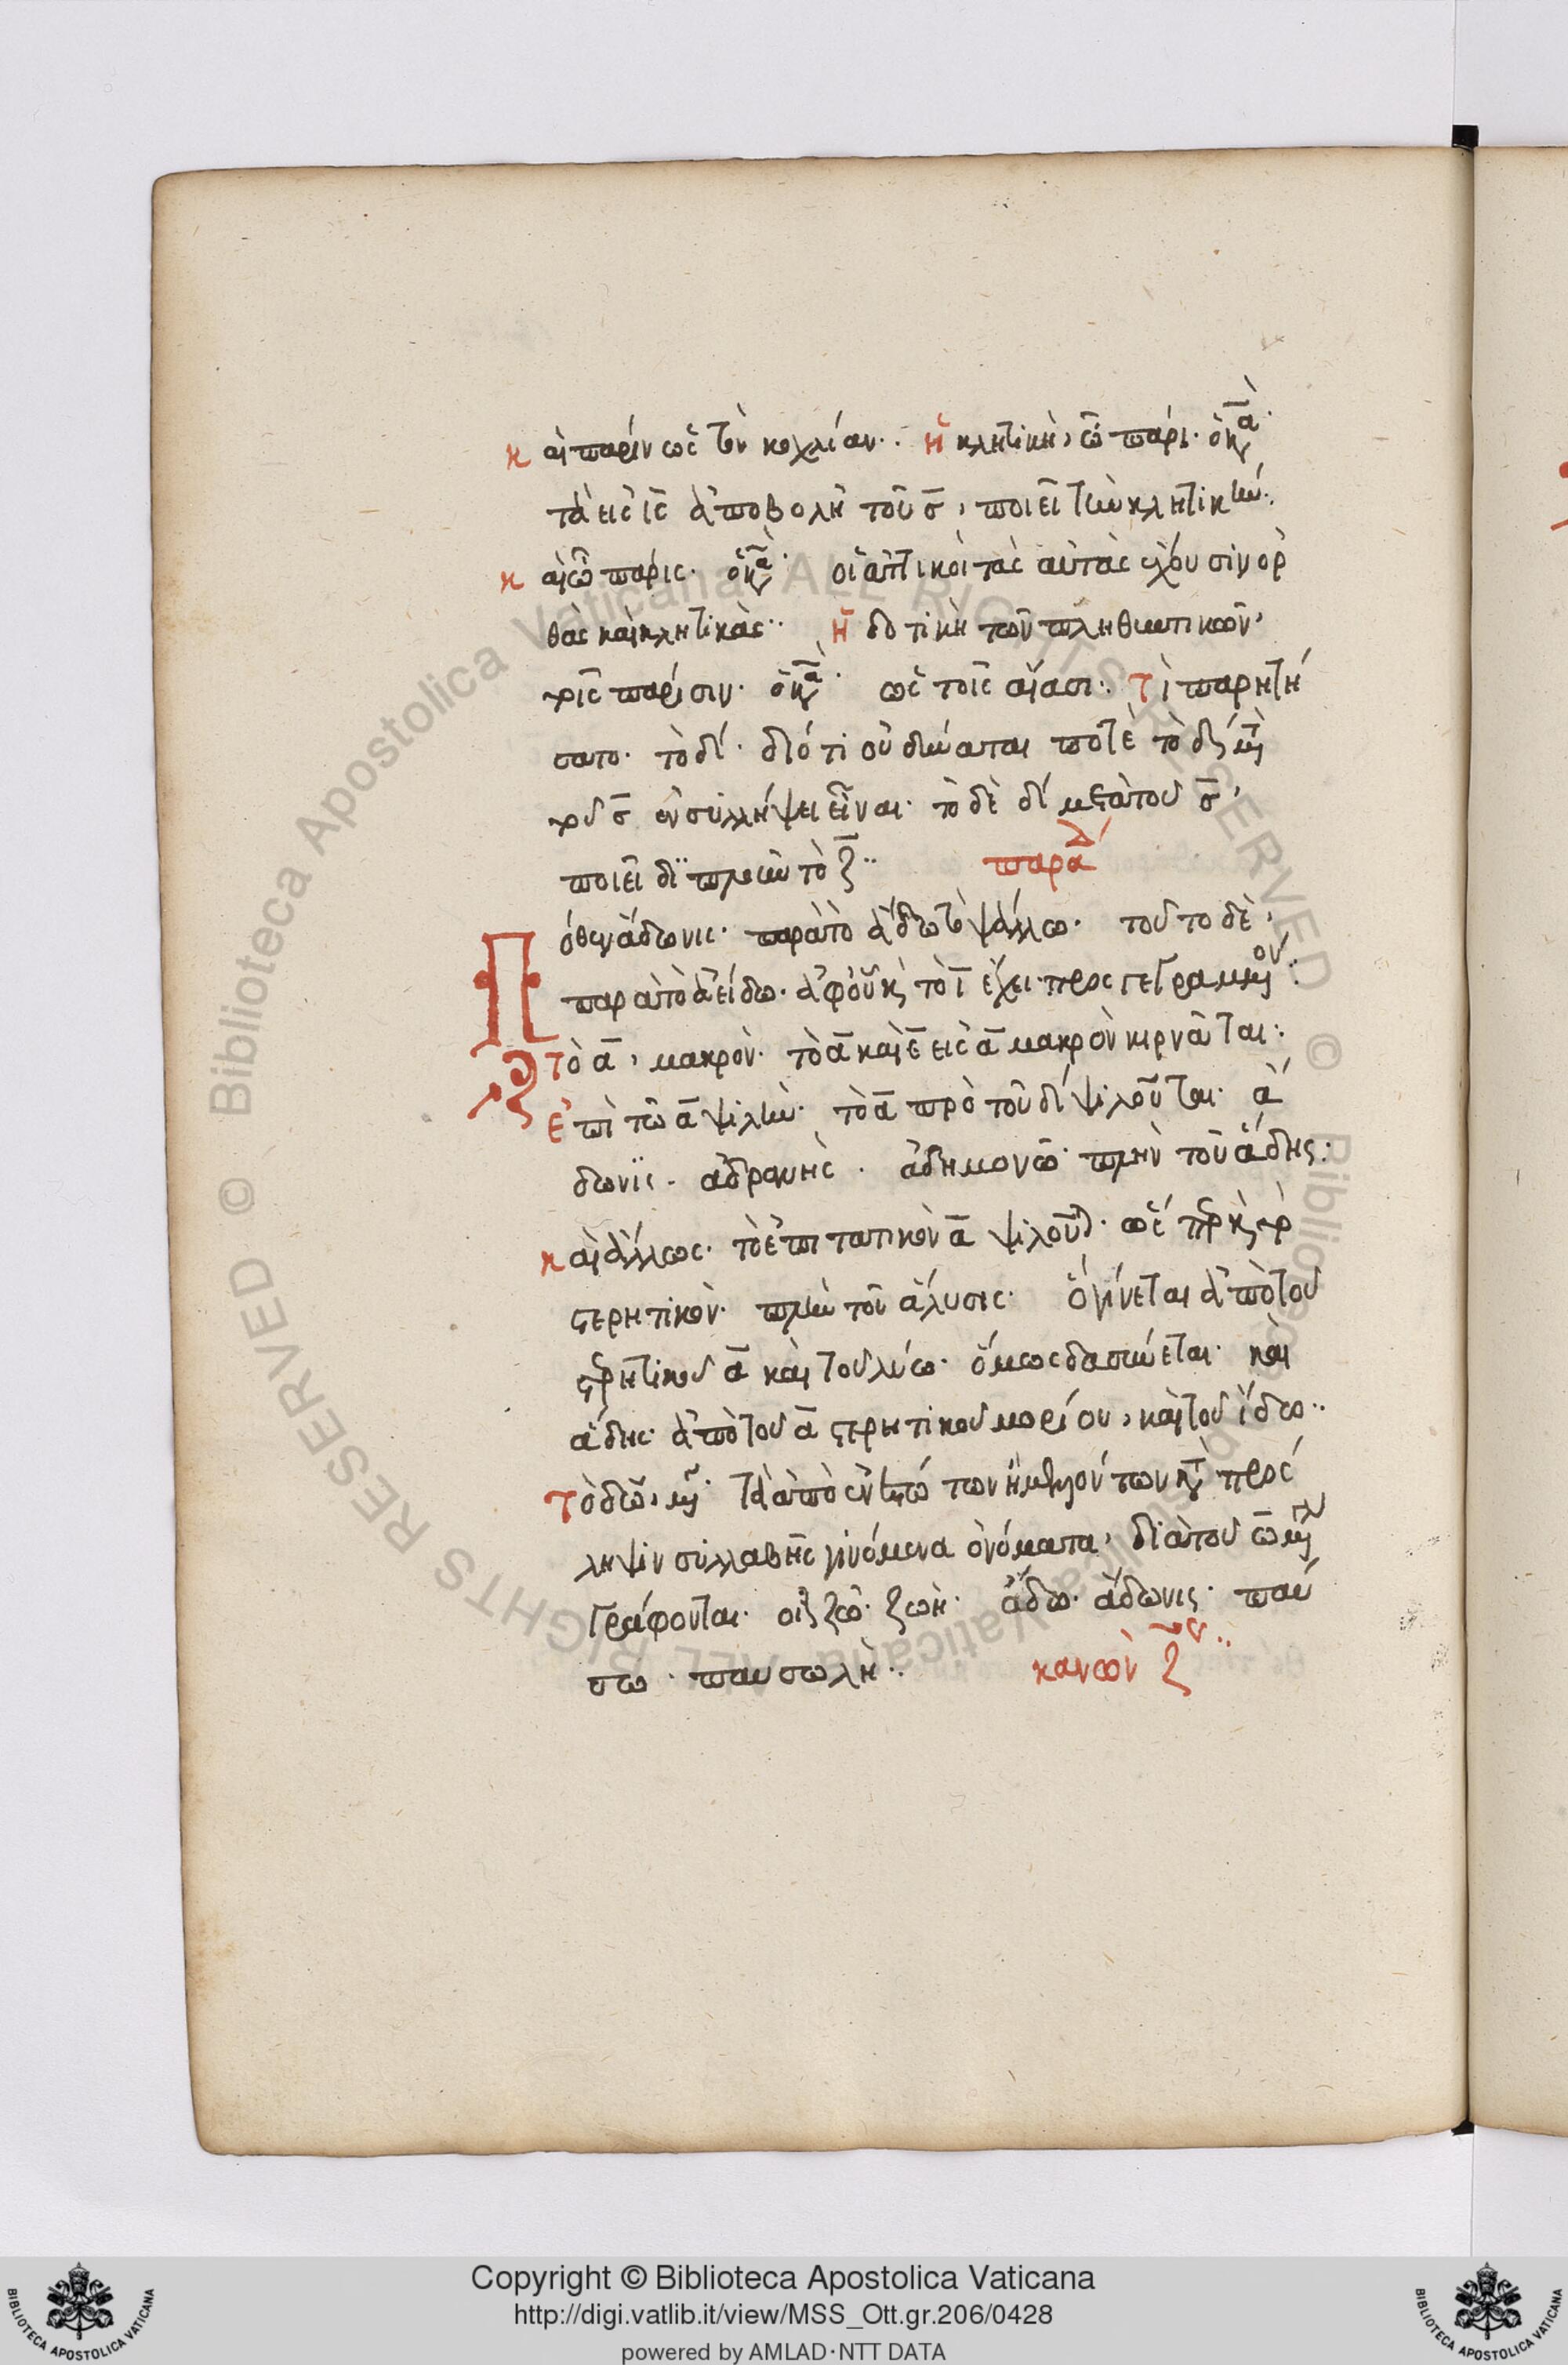 καὶ παρὶν ὡς τὸν κοχλίαν· ἡ κλητικὴ, ὦ πάρι· ὁ κα
τὰ εἰς ις ἀποβολῇ τοῦ σ, ποιεῖ τὴν κλητικήν·
καὶ ὦ πάρις· ὁ κα οἱ ἀττικοὶ τὰς αὐτὰς ἔχουσιν ὀρ
θὰς καὶ κλητικάς·· ἡ δοτικὴ τῶν πληθυντικῶν,
τοῖς πάρισιν· ὁ κα ὡς τοῖς αἴασι·. τί παρῃτή
σατο· τὸ δ· διότι οὐ δύναται ποτὲ τὸ δ μετὰ
τοῦ σ ἐν συλλήψει εἶναι· τὸ δὲ δ μετὰ τοῦ σ,
ποιεῖ διπλοῦν τὸ ζ··
παρα
Πόθεν ἄδωνις· παρὰ τὸ ἄδω τὸ ψάλλω· τοῦτο δὲ,
παρὰ τὸ ἀείδω· ἀφ' οὗ καὶ τὸ ι ἔχει προσγεγραμμένον·
τὸ α, μακρόν· τὸ α καὶ ε εἰς α μακρὸν κιρνᾶται·.
ἐπὶ τῶ α ψιλήν· τὸ α πρὸ τοῦ δ ψιλοῦται· ἄ
δωνις· ἀδρανής· ἀδημονῶ· πλὴν τοῦ ἅδης·
καὶ ἄλλως· τὸ ἐπιτατικὸν α ψιλοῦται· ὡς καὶ τὸ
στερητικόν· πλὴν τοῦ ἅλυσις· ὃ γίνεται ἀπὸ τοῦ
στερητικοῦ α καὶ τοῦ λύω· ὅμως δασύνεται· καὶ
ἅδης· ἀπὸ τοῦ α στερητικοῦ μορίου, καὶ τοῦ ἴδω··
τὸ δω, μέγα· τὰ ἀπὸ ἐνεστώτων ἢ μελλόντων κατὰ πρός
ληψιν συλλαβῆς γινόμενα ὀνόματα, διὰ τοῦ ω μεγάλου
γράφονται· οἷον ζῶ· ζωή· ἄδω· ἄδωνις· παύ
σω· παυσωλή·.
κανὼν ζ
Copyright © Biblioteca Apostolica Vaticana
http://digi.vatlib.it/view/MSS_Ott.gr.206/0428
powered by AMLAD·NTT DATA